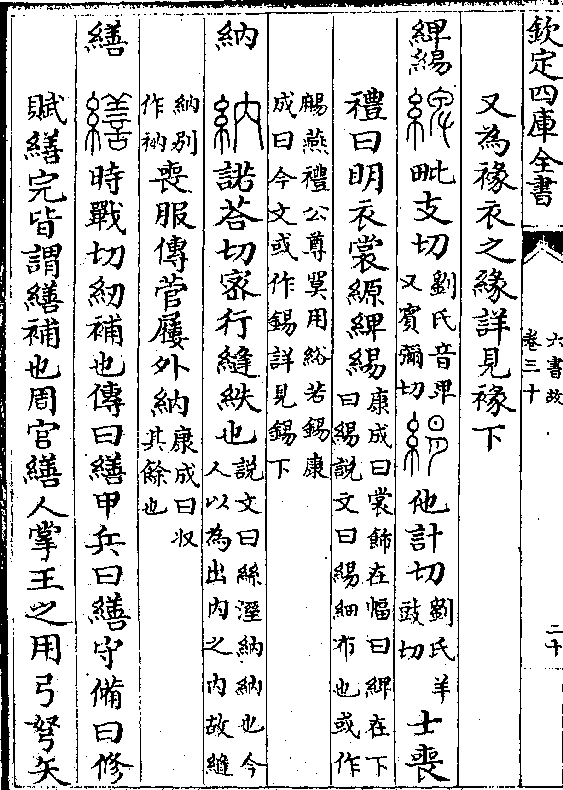 欽定四庫全書
六書故
卷三十
二十
又為褖衣之緣詳見褖下
綼緆
毗支切
劉氏音卑
又賓彌切
他計切
劉氏羊
豉切
士喪
禮曰明衣裳縓綼緆
康成曰裳飾在幅曰綼在下
曰緆說文曰緆細布也或作
䴳燕禮公尊冪用綌若錫康
成曰今文或作錫詳見錫下
納
諾荅切宻行縫紩也
說文曰絲溼納納也今
人以為出内之内故縫
納别
作衲
喪服傳菅屨外納
康成曰收
其餘也
繕
時戰切紉補也傳曰繕甲兵曰繕守備曰修
賦繕完皆謂繕補也周官繕人掌王之用弓弩矢